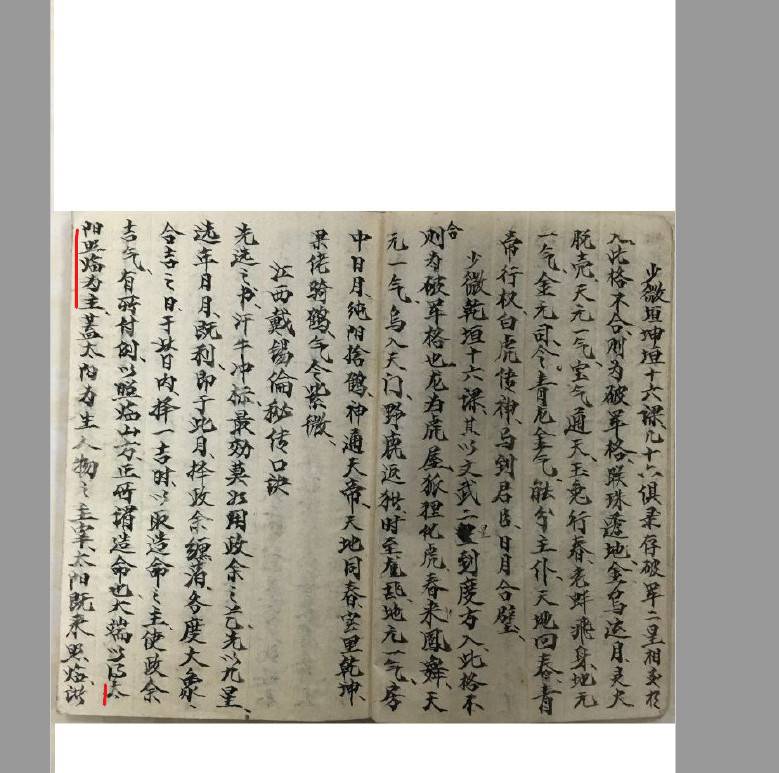 少微垣坤垣十六课凡十六俱柔存破军二星相交于
入此格不合则为破军格联珠透地金乌过月灵犬
脱壳天元一气室气通天玉兔行春老蚌飛身地元
一气金元司令青龙金气能分主仆天地回春青
帝行权白虎传神乌到君臣日月合璧
少微乾垣十六课其以文武二星到度方入此格不
合则为破军格也龙为虎屋狐狸化虎春来凤舞天
元一气乌入天门野鹿返 时至 地元一气房
中日月纯阳捨鹤神通天帝天地同春室里乾坤
果佬骑鹤气令紫微
江西戴锡倫秘传口诀
先选之书汗牛冲栋最効莫如用政余之艺先以九星
选年月月既利即于此月择政余缠落各度大象
合吉之日于廿日内择一吉时以取造命之主使政余
吉气有所付倒以照临山方正所谓造命也大端以太
阳照临为主盖太阳为生人物之主宰太阳既来照临诸